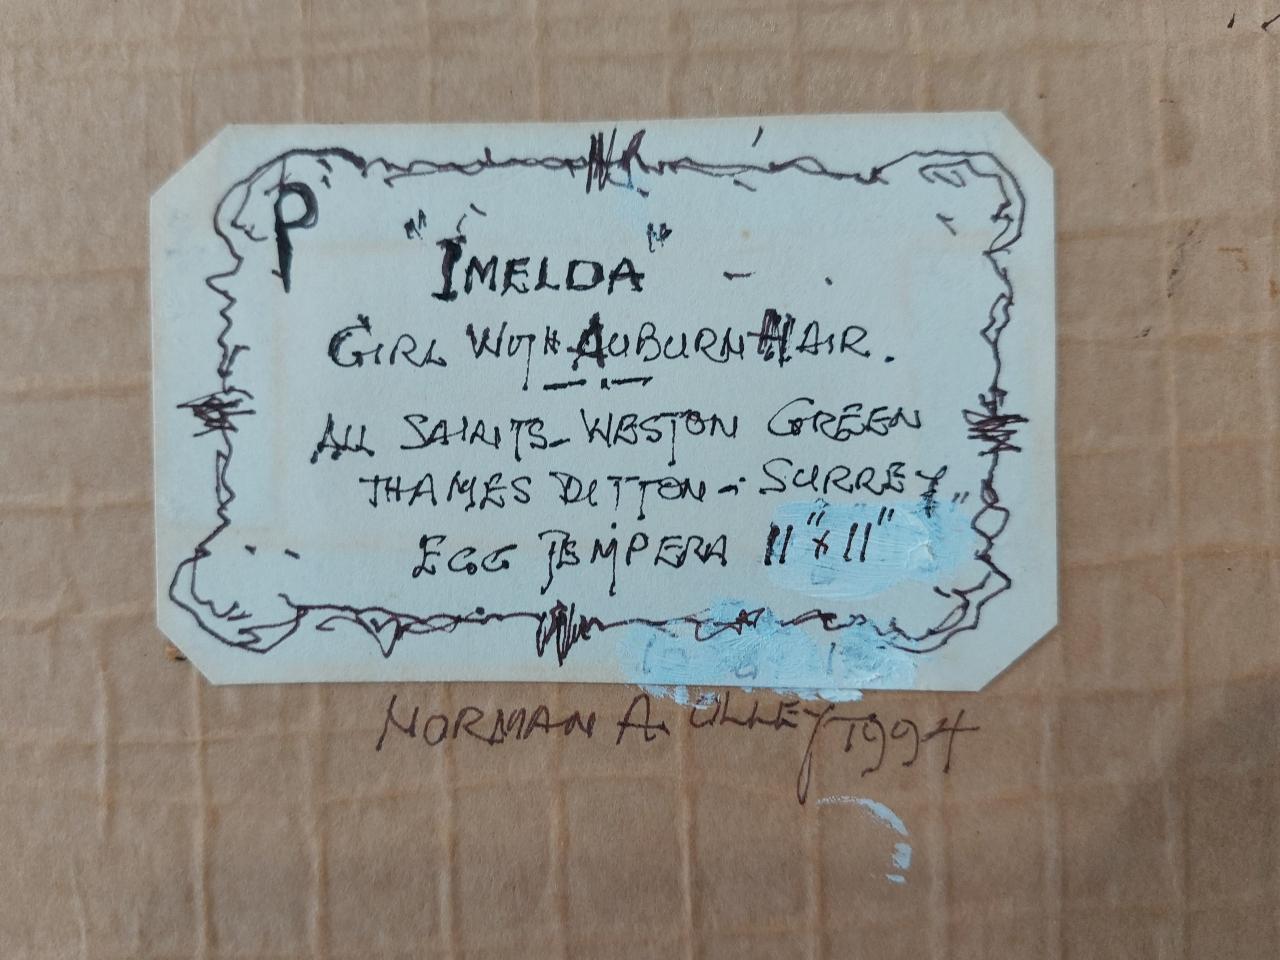 P
"IMELDA" - .
GIRL WITH AUBURN HAIR.
ALL SAINTS - WESTON GREEN
THAMES DITTON - SURREY
EGG TEMPERA 11" x 11"
NORMAN A. ULLEY 1994